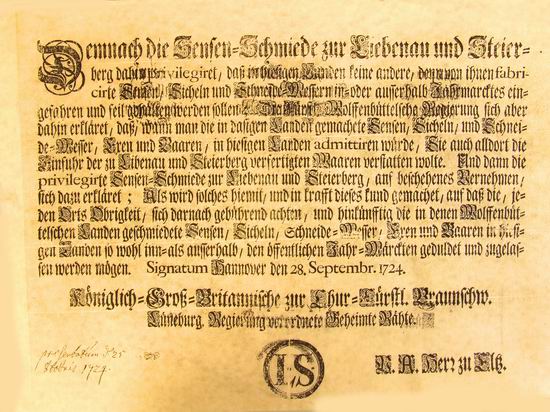 Demnach die Sensen-Schmiede zur Liebenau und Steier-
berg dahin privilegiret, daß in hiesigen Landen keine andere, denn von ihnen fabri-
cirte Sensen, Sicheln und Schneide-Messern in- oder ausserhalb Jahrmarcktes ein-
gefahren und feil gehalten werden sollen; Die Fürstl. Wolffenbüttelsche Regierung sich aber
dahin erkläret, daß, wann man die in dasigen Landen gemachete Sensen, Sicheln, und Schnei-
de-Messer, Eren und Waaren, in hiesigen Landen admittiren würde, Sie auch alldort die
Einfuhr der zu Libenau und Steierberg verfertigten Waaren verstatten wolte. Und dann die
privilegirte Sensen-Schmiede zur Liebenau und Steierberg, auf beschehenes Vernehmen,
sich dazu erkläret; Als wird solches hiemit, und in krafft dieses kund gemachet, auf daß die, je-
den Orts Obrigkeit, sich darnach gebührend achten, und hinkünfftig die in denen Wolffenbüt-
telschen Landen geschmiedete Sensen, Sicheln, Schneide-Messer, Eren und Waaren in hiesi-
gen Landen so wohl inn- als ausserhalb, den öffentlichen Jahr-Märckten geduldet und zugelas-
sen werden mögen. Signatum Hannover den 28. Septembr. 1724.
Königlich-Groß-Britannische zur Chur-Fürstl. Braunschw.
Lüneburg. Regierung verordnete Geheimte Räthe.
25
1724.
I.S.
V. A. Herr zu Eltz.